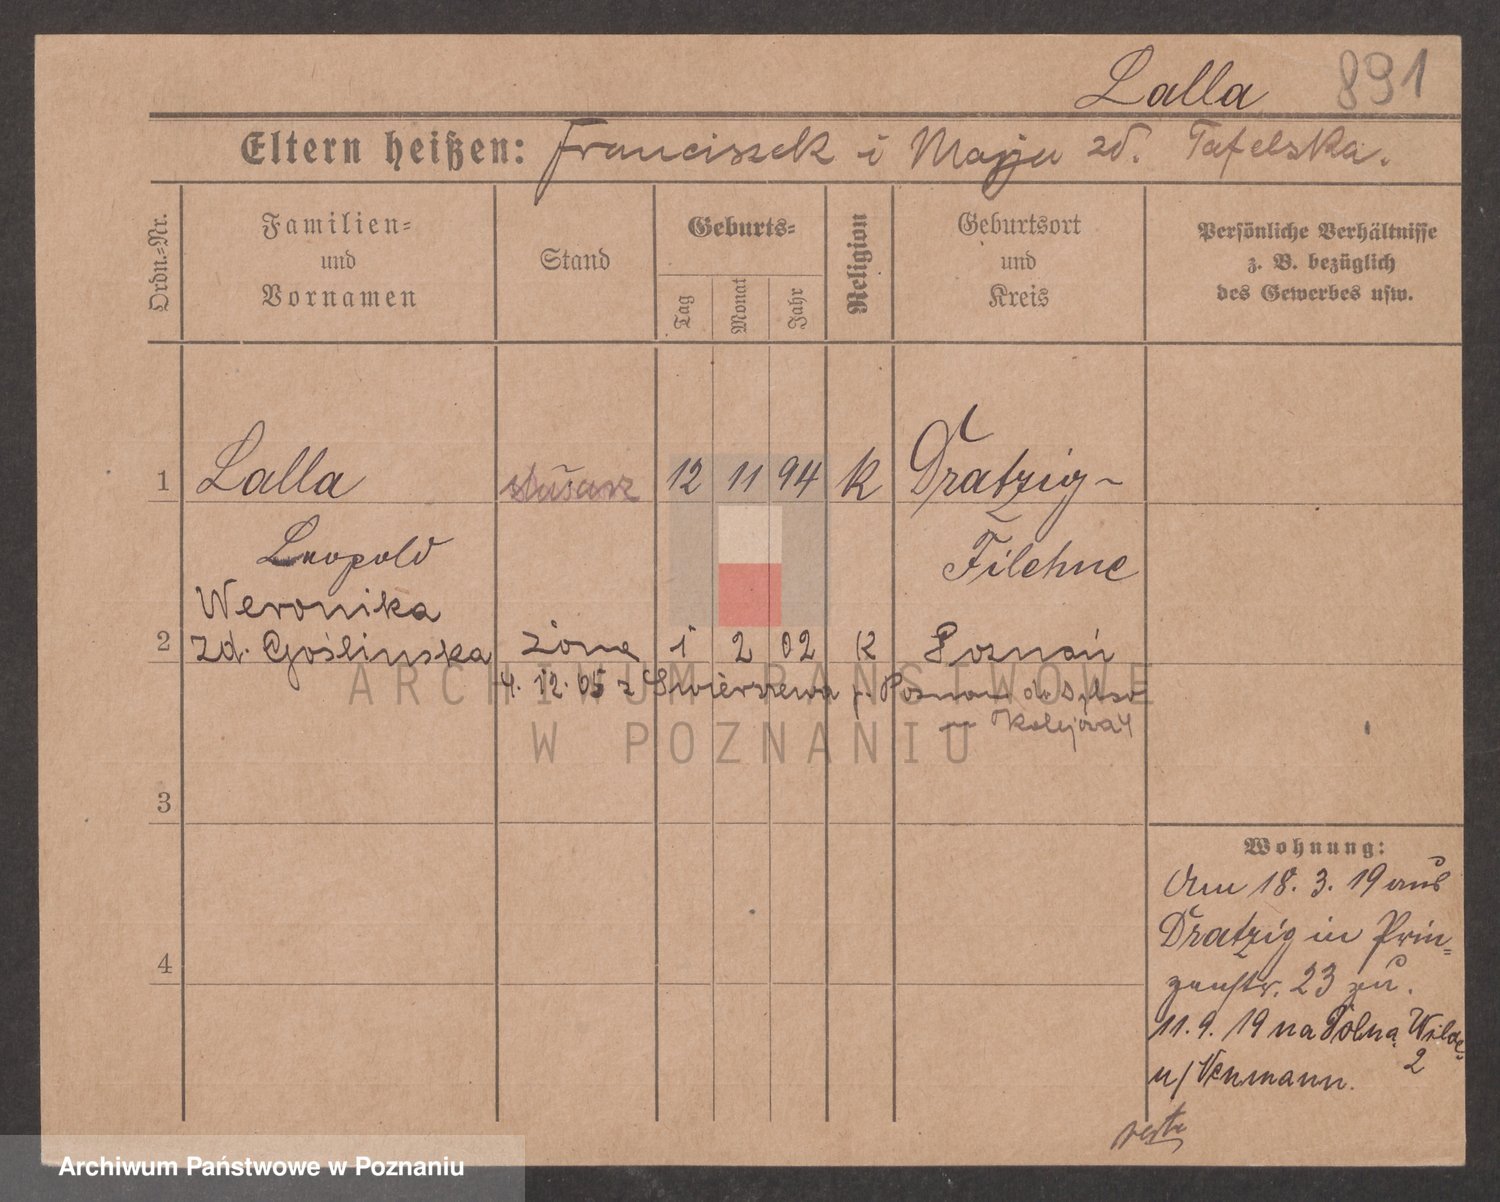 Lalla 891
Eltern heißen: Franciszek i Marja zd. Tafelska.
Ordn.-Nr.
Familien-
und
Vornamen
Stand
Geburts-
Tag
Monat
Jahr
Religion
Geburtsort
und
Kreis
Persönliche Verhältnisse
z. B. bezüglich
des Gewerbes usw.
1 Lalla ślusarz 12 11 94 K Dratzig-
Leopold Filehne
Weronika
2 zd. Goślinska żona 1 2 02 K Poznań
4. 12. 05 z Świerszewa p. Poznań do
Kolejowa 4
ARCHIWUM PAŃSTWOWE
W POZNANIU
3
4
Wohnung:
Am 18. 3. 19 aus
Dratzig in Prin-
zenstr. 23 zu.
11. 9. 19 na Polną Wilde
2
u/ Venmann.
Archiwum Państwowe w Poznaniu